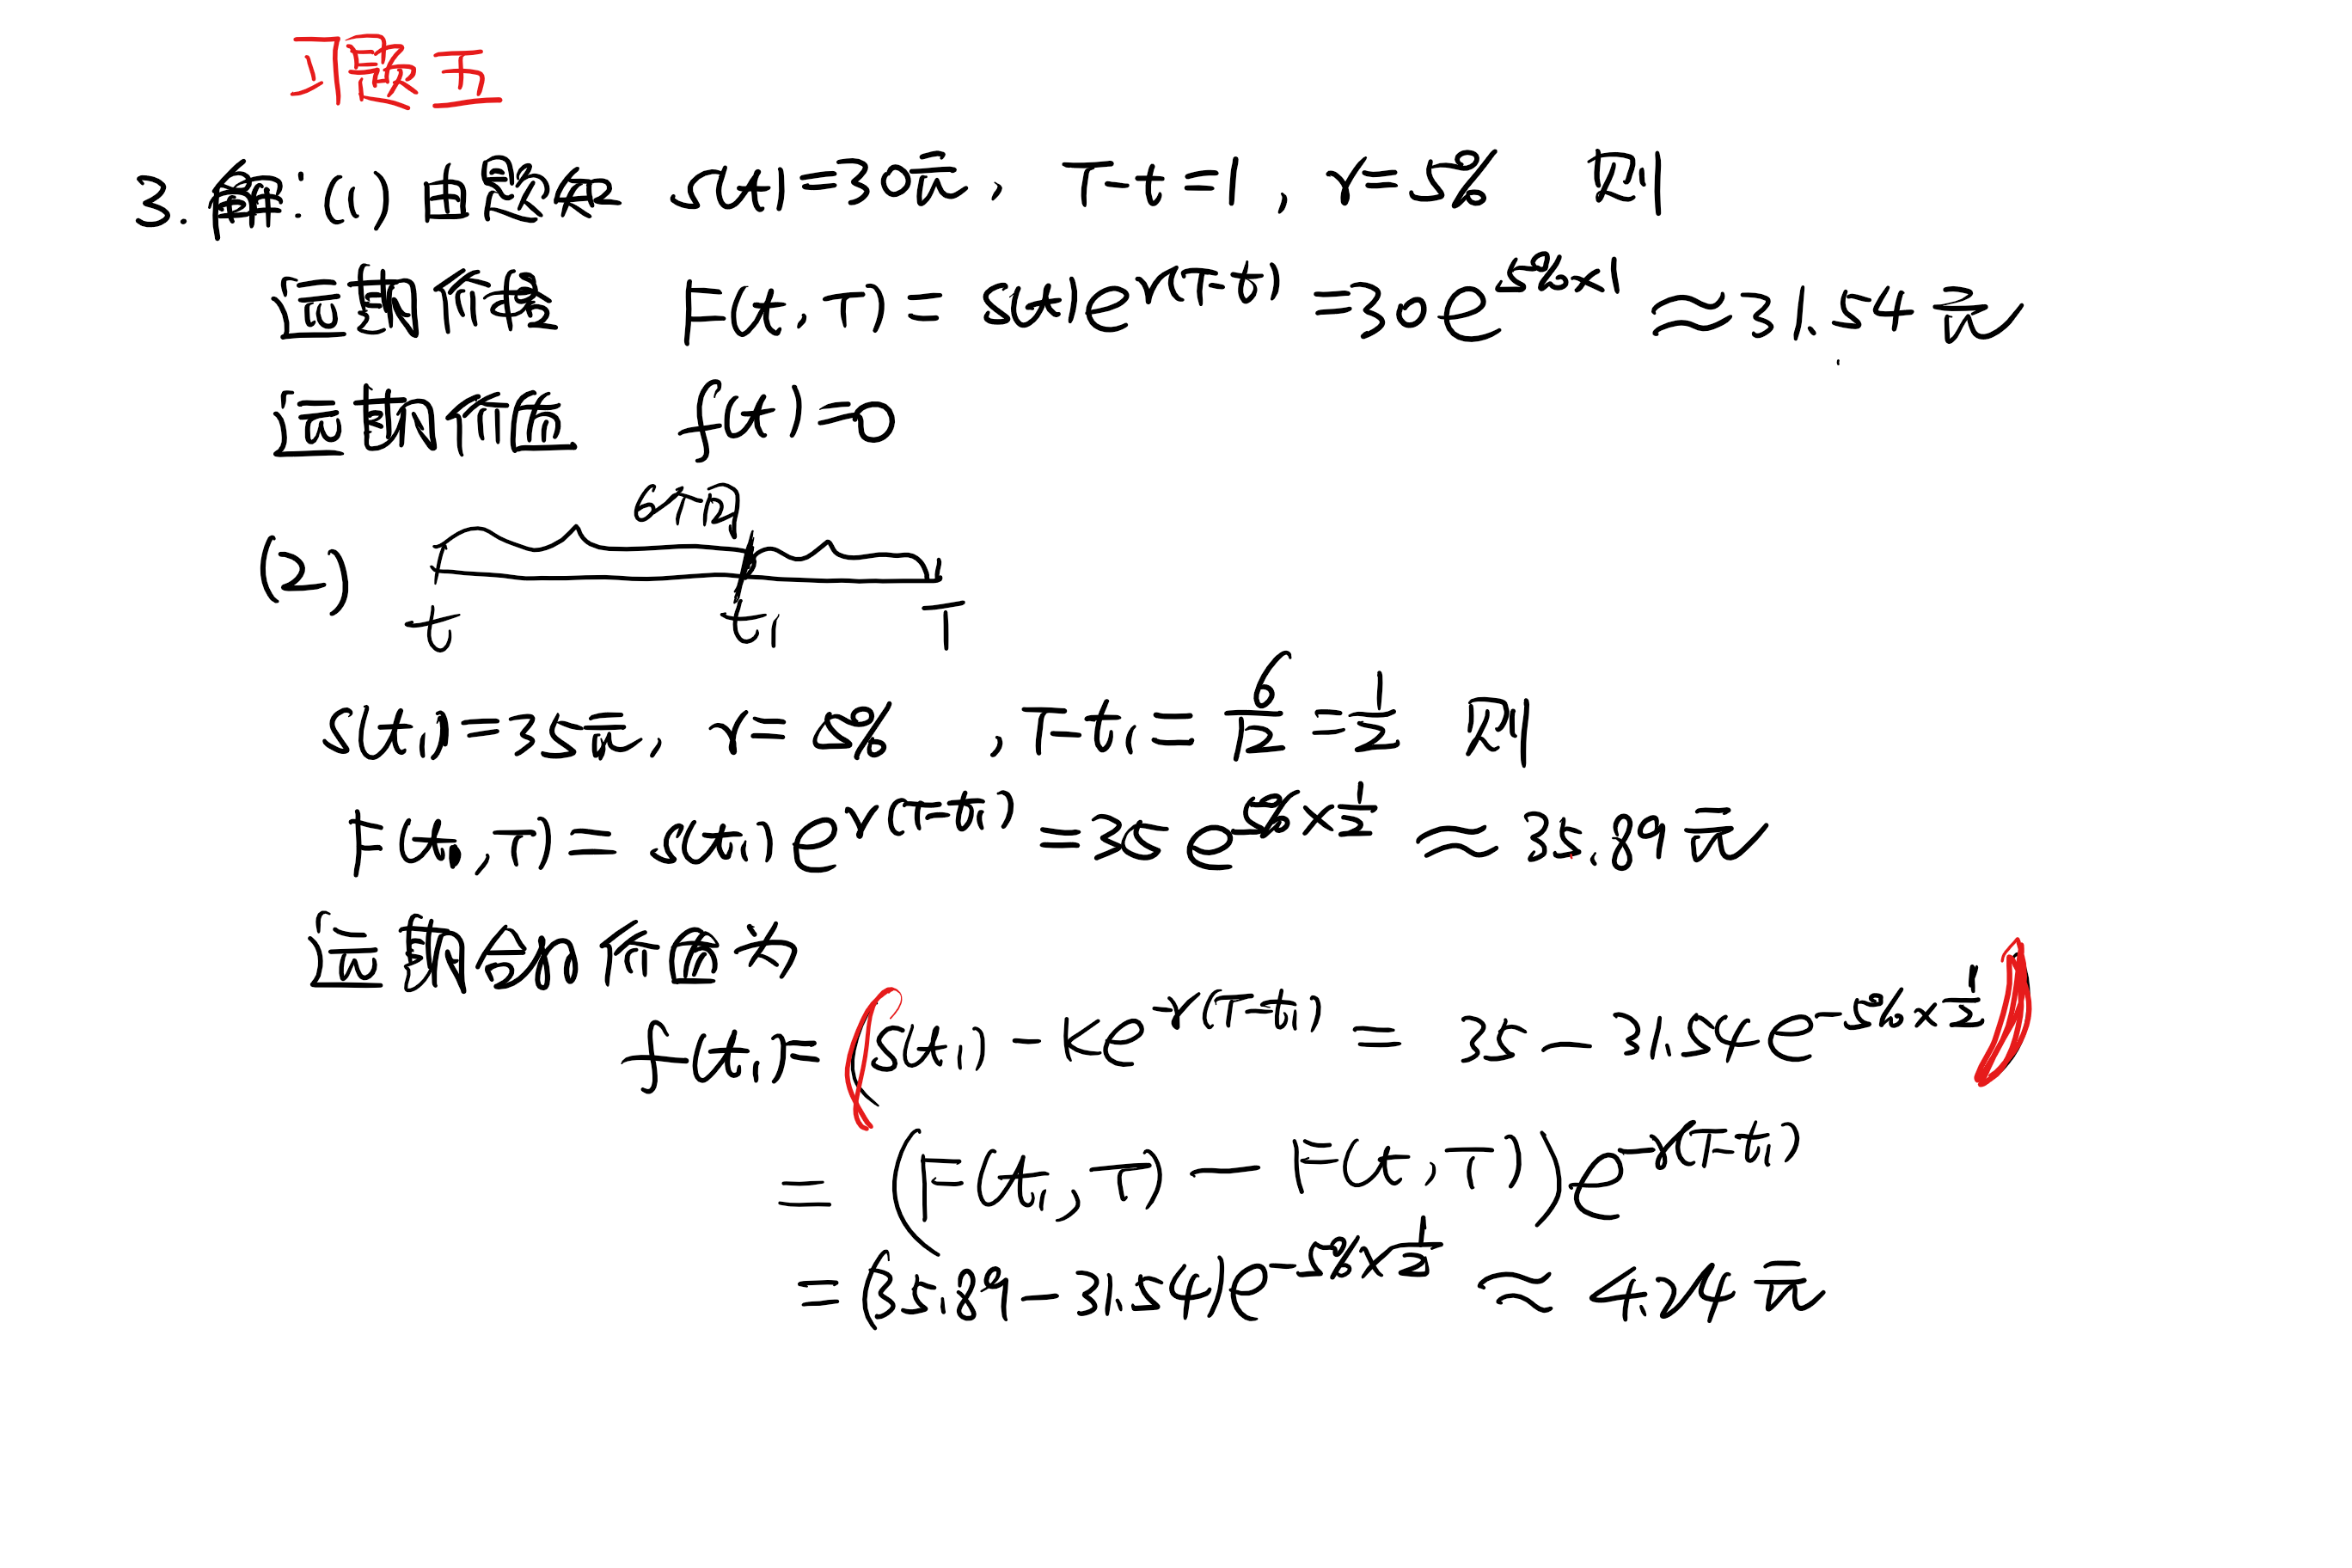 习题五
3. 解:(1) 由题知 S(t)=30元, T-t=1, r=5% 则
远期价格 F(t,T)=S(t)e^{r(T-t)}=30e^{5%×1}≈31.54元
远期价值 f(t)=0
(2) 6个月
t t₁ T
S(t₁)=35元, r=5%, T-t₁=6/12=1/2 则
F(t₁,T)=S(t₁)e^{r(T-t₁)}=35e^{5%×1/2}≈35.89元
远期合约价值为
f(t₁)=(S(t₁)-Ke^{-r(T-t₁)}=35-31.54e^{-5%×1/2})
=(F(t₁,T)-F(t,T))e^{-r(T-t₁)}
=(35.89-31.54)e^{-5%×1/2}≈4.24元